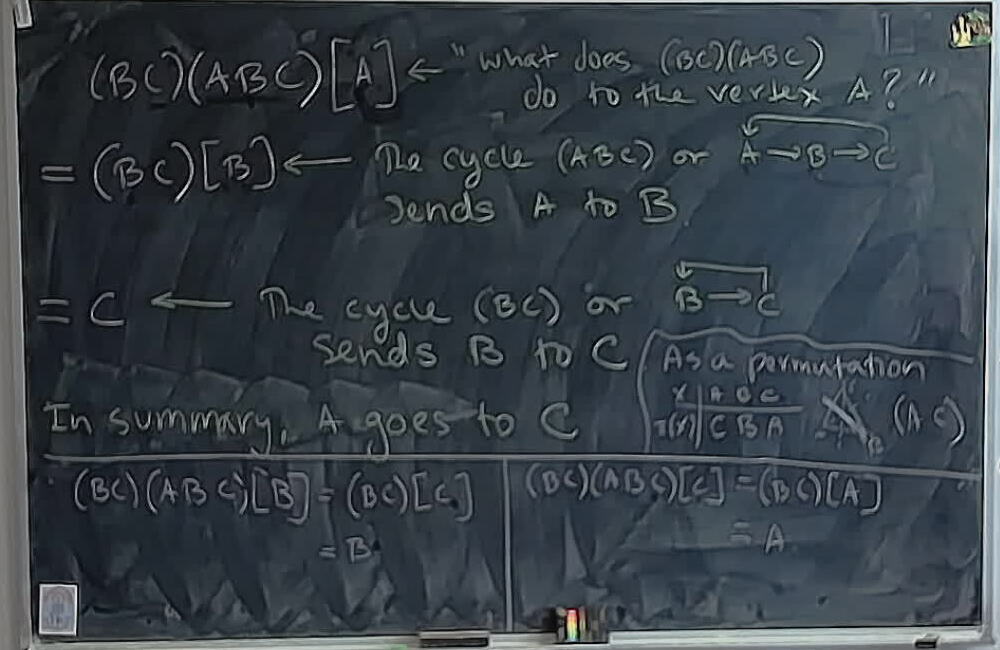 (BC)(ABC)[A] ← "what does (BC)(ABC)
do to the vertex A?"
= (BC)[B] ← The cycle (ABC) or A→B→C
sends A to B.
= C ← The cycle (BC) or B→C
sends B to C
In summary, A goes to C
As a permutation
x | A B C
π(x) | C B A
B
(A C)
(BC)(ABC)[B] = (BC)[C]
= B
(BC)(ABC)[C] = (BC)[A]
= A